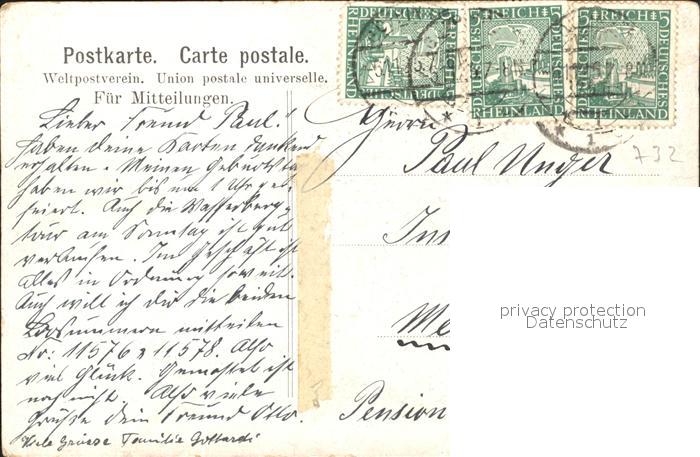 Postkarte. Carte postale.
Weltpostverein. Union postale universelle.
Für Mitteilungen.
DEUTSCHES REICH
RHEINLAND
5 REICH 5
DEUTSCHES
RHEINLAND
5 REICH 5
DEUTSCHES
RHEINLAND
Lieber Freund Paul!
Haben deine Karten dankend
erhalten. Meinen Geburtstag
haben wir bis um 1 Uhr ge-
feiert. Auch die Wasserberg-
tour am Sonntag ist gut
verlaufen. Im Geschäft ist
alles in Ordnung soweit.
Auch will ich dir die beiden
Losnummern mitteilen
No: 11576 & 11578. Also
viel Glück. Gemostet ist
noch nicht. Also viele
Grüße dein Freund Otto.
Viele Grüsse Familie Gottardi
Herrn
Paul Unger
732
Ins
Me
Pension
privacy protection
Datenschutz